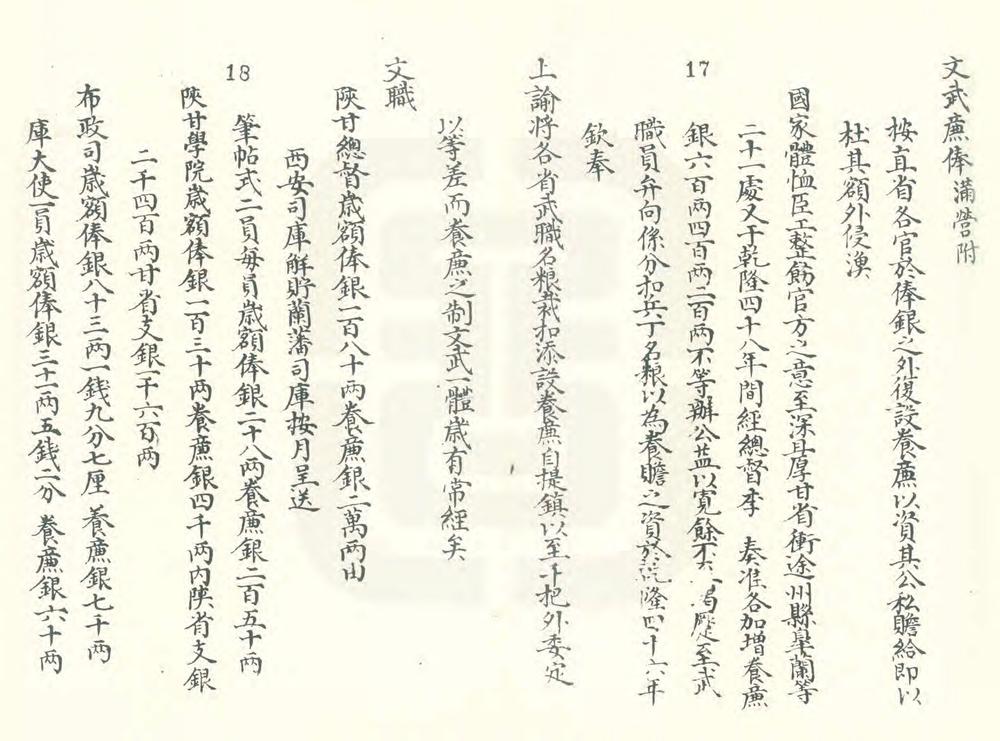 文武廉俸 滿營附
按直省各官於俸銀之外復設養廉以資其公私贍給即以
杜其額外侵漁
國家體恤臣工整飭官方之意至深且厚甘省衝途州縣皐蘭等
二十一處又于乾隆四十八年間經總督李 奏准各加增養廉
17
銀六百两四百两二百两不等辦公益以寬餘不
至武
職員弁向係分扣兵丁名粮以為養贍之資於乾隆四十六年
欽奉
上諭將各省武職名粮裁扣添設養廉自提鎮以至千把外委定
以等差而養廉之制文武一體歲有常經矣
文職
陝甘總督歲額俸銀一百八十两養廉銀二萬两由
西安司庫解貯蘭藩司庫按月呈送
18
筆帖式二員每員歲額俸銀二十八两養廉銀二百五十两
陝甘學院歲額俸銀一百三十两養廉銀四千两内陝省支銀
二千四百两甘省支銀一千六百两
布政司歲額俸銀八十三两一錢九分七厘 養廉銀七千两
庫大使一員歲額俸銀三十一两五錢二分 養廉銀六十两